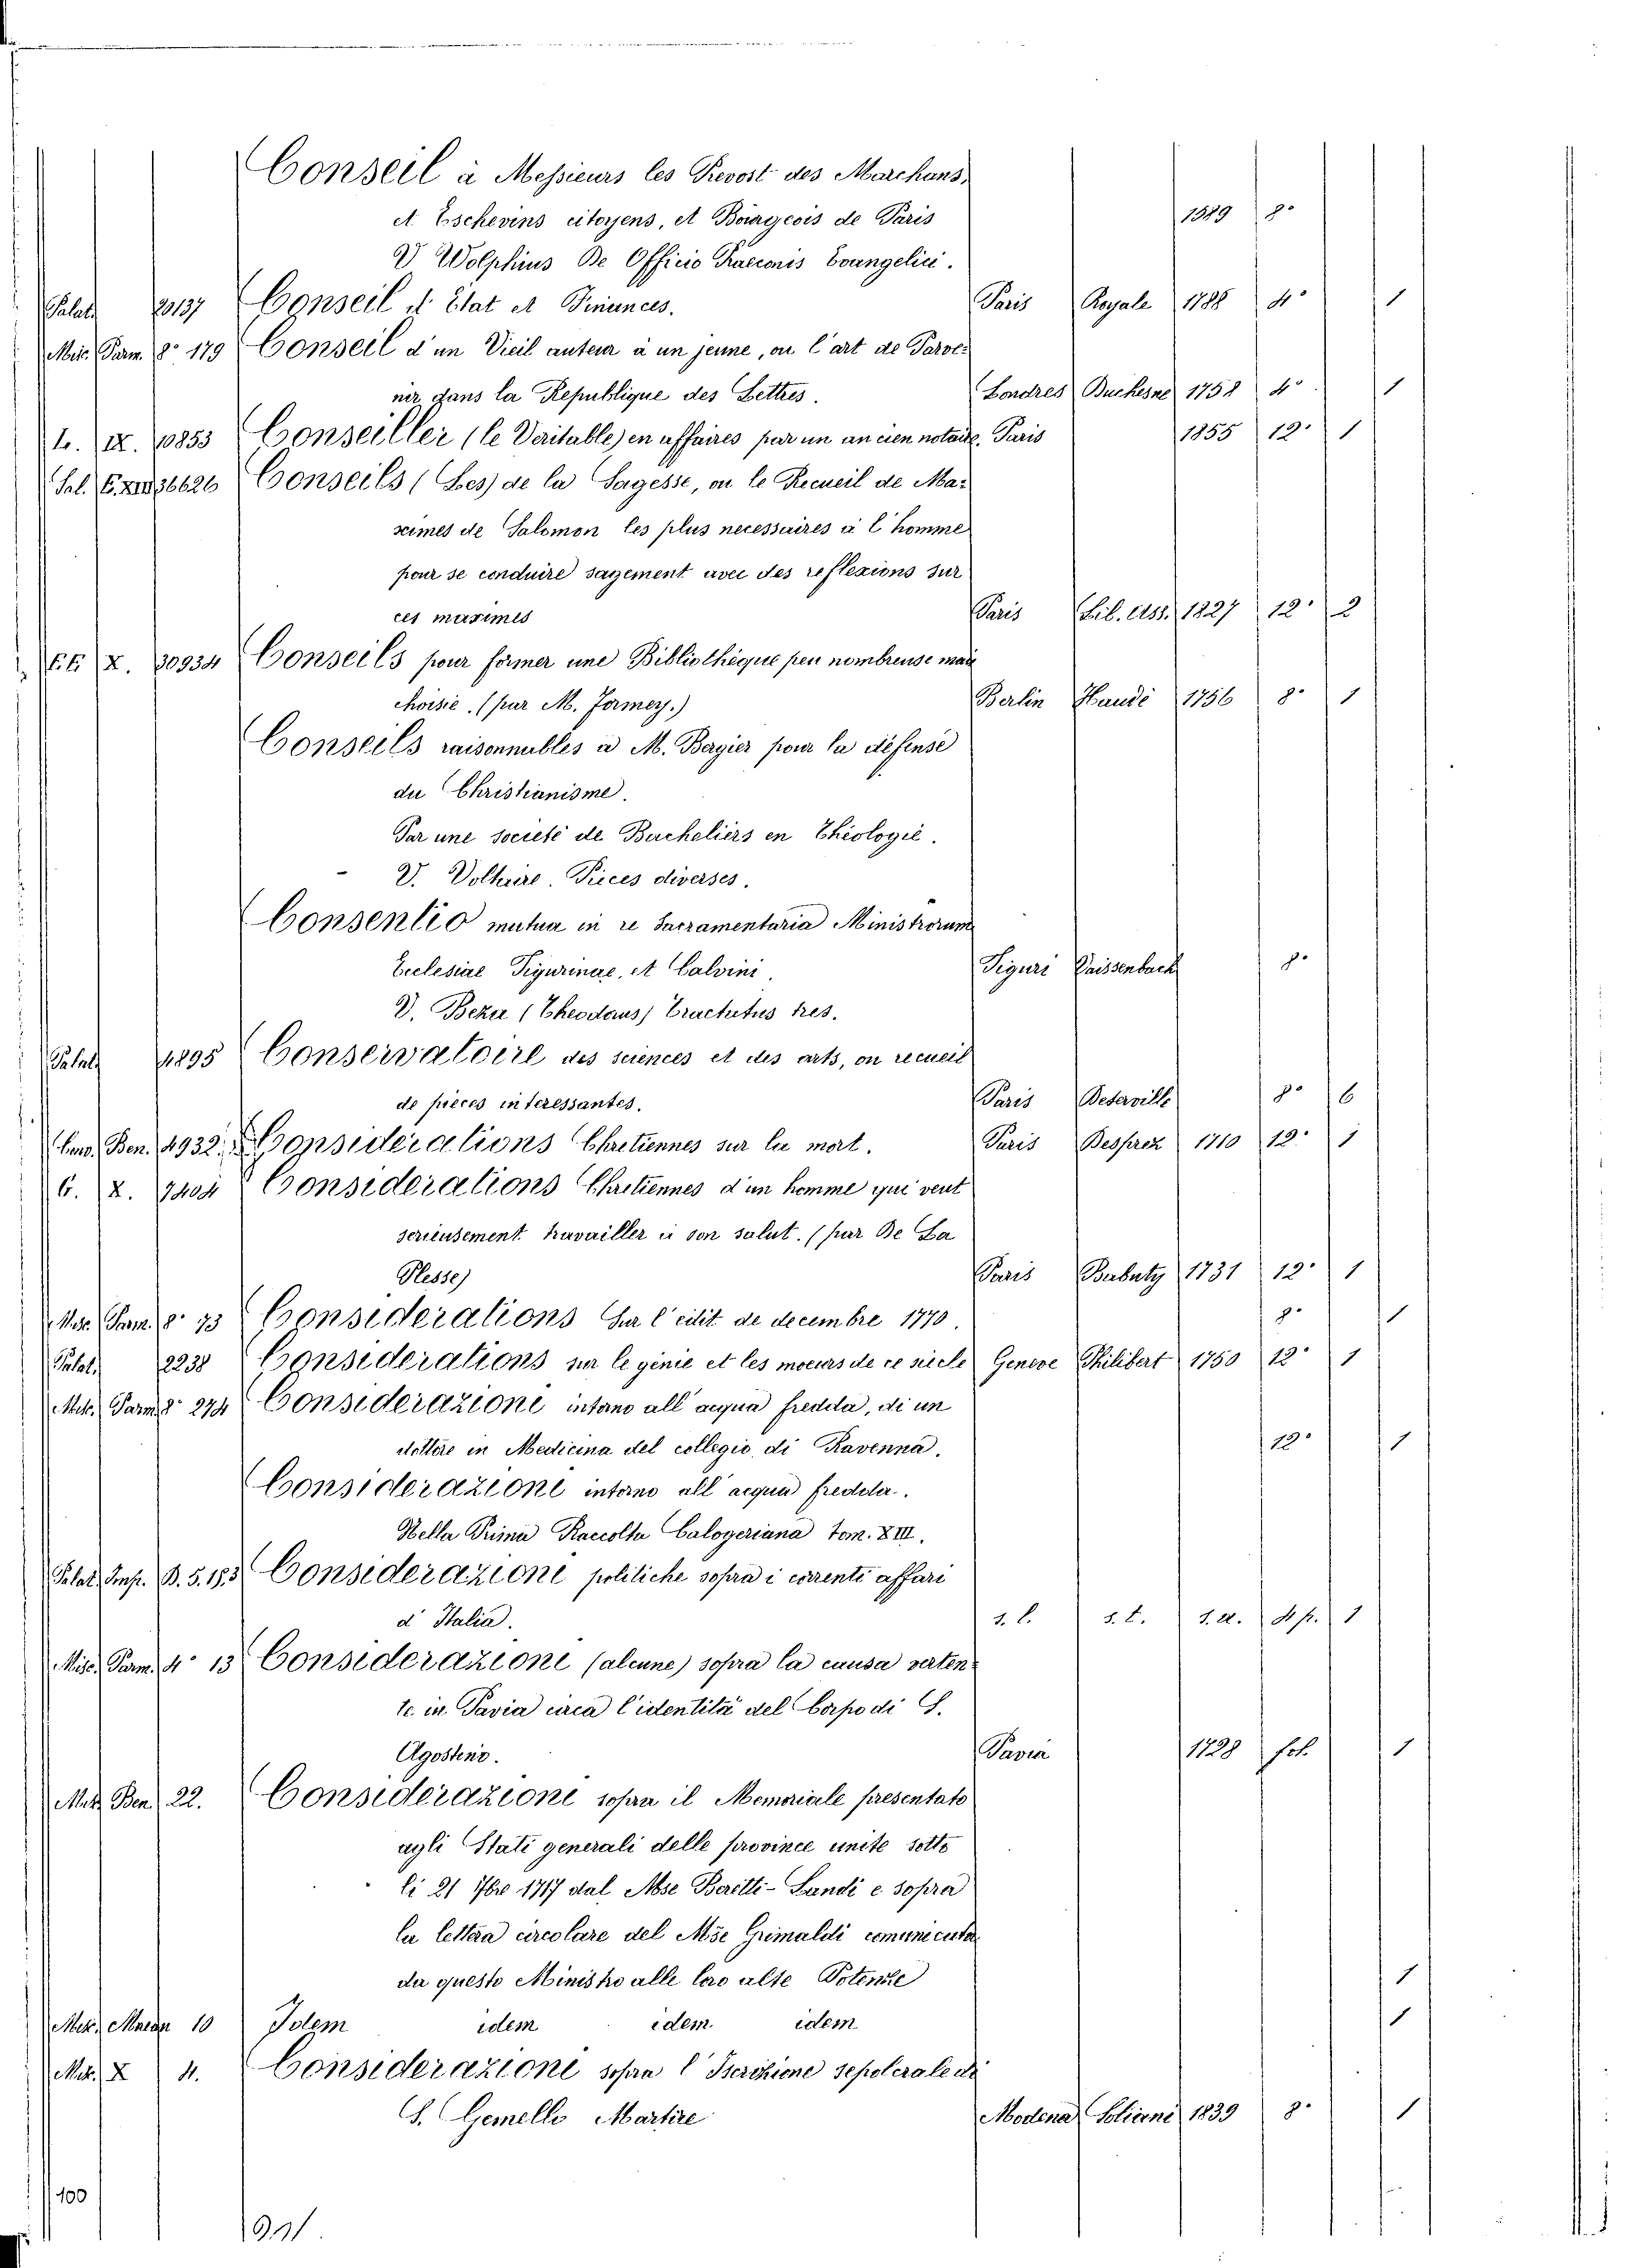 Conseil à Messieurs les Prevost des Marchans,
et Eschevins citoyens, et Bourgeois de Paris 1589 8°
V Wolphius De Officio Praeconis Evangelici.
Palat 20137 Conseil d'Etat et Finances. Paris Royale 1788 4° 1
Misc. Parm. 8° 179 Conseil d'un Vieil auteur à un jeune, ou l'art de Parve-
nir dans la Republique des Lettres. Londres Duchesne 1758 4° 1
L. IX. 10853 Conseiller (le Veritable) en affaires par un ancien notaire Paris 1855 12° 1
Sal. E. XIII 36626 Conseils (Les) de la Sagesse, ou le Recueil de Ma-
ximes de Salomon les plus necessaires à l'homme
pour se conduire sagement avec des reflexions sur
ces maximes Paris Lib. Ass. 1827 12° 2
E.E X. 30934 Conseils pour former une Bibliothèque peu nombreuse mais
choisie. (par M. Formey.) Berlin Haude 1756 8° 1
Conseils raisonnables à M. Bergier pour la défense
du Christianisme.
Par une societé de Bacheliers en Théologie.
V. Voltaire. Pièces diverses.
Consentio mutua in re Sacramentaria Ministrorum
Ecclesiae Tigurinae, et Calvini. Tiguri Vaissenbach 8°
V. Beza (Theodorus) Tractatus tres.
Palat 4895 Conservatoire des sciences et des arts, ou recueil
de pièces interessantes. Paris Deterville 8° 6
Ben. 4932. Considerations Chretiennes sur la mort. Paris Desprez 1710 12° 1
G. X. 7404 Considerations Chretiennes d'un homme qui veut
serieusement travailler à son salut. (par De La
Plesse) Paris Babuty 1731 12° 1
Misc. Parm. 8° 73 Considerations Sur l'edit de decembre 1770. 8° 1
Palat. 2238 Considerations sur le génie et les moeurs de ce siecle Geneve Philibert 1750 12° 1
Misc. Parm. 8° 274 Considerazioni intorno all'acqua fredda, di un
dottore in Medicina del collegio di Ravenna. 12° 1
Considerazioni intorno all'acqua fredda.
Nella Prima Raccolta Calogeriana tom. XIII.
Palat. Imp. B. 5. 193 Considerazioni politiche sopra i correnti affari
d'Italia. s. l. s. t. s. a. 4 p. 1
Misc. Parm. 4° 13 Considerazioni (alcune) sopra la causa verten-
te in Pavia circa l'identità del Corpo di S.
Agostino. Pavia 1728 fol. 1
Misc. Ben. 22. Considerazioni sopra il Memoriale presentato
agli Stati generali delle province unite sotto
li 21 7bre 1717 dal Mse Beretti-Landi e sopra
la lettera circolare del Mse Grimaldi comunicata
da questo Ministro alle loro alte Potenze 1
10 Idem idem idem idem 1
Misc. X 4. Considerazioni sopra l'Iscrizione sepolcrale di
S. Gemello Martire Modena Soliani 1839 8° 1
100